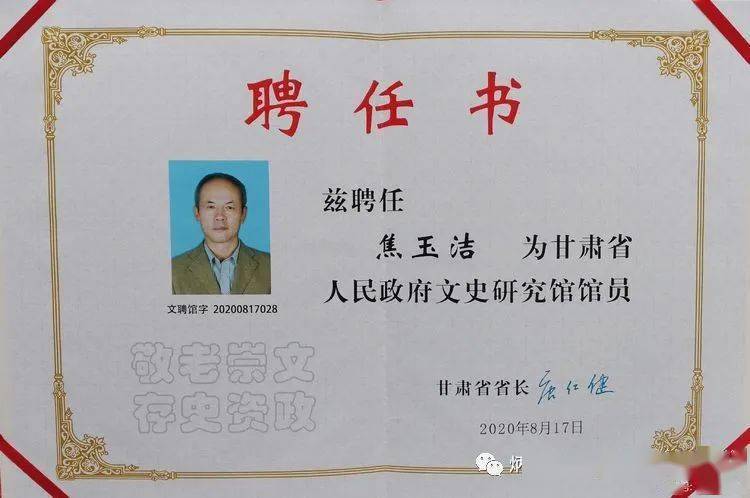 聘任书
兹聘任
焦玉洁 为甘肃省
人民政府文史研究馆馆员
文聘馆字 20200817028
敬老崇文
存史资政
甘肃省省长 唐仁健
2020年8月17日